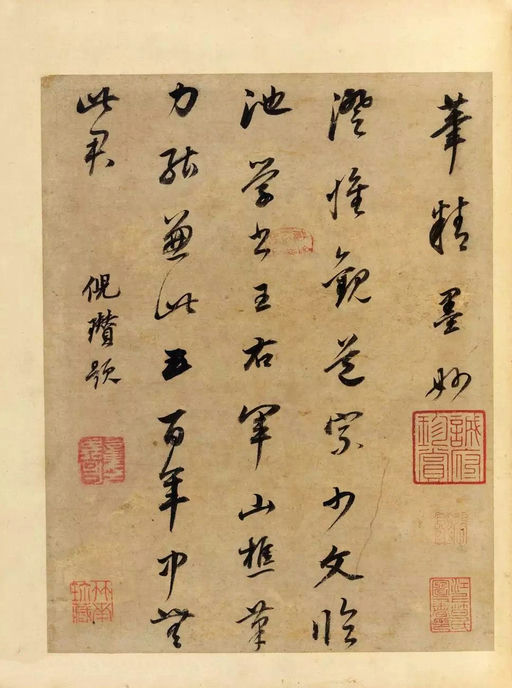 筆精墨妙
澄懷觀道宗少文臨
池學書王右軍山樵筆
力能兼此五百年中無
此君
倪瓚題